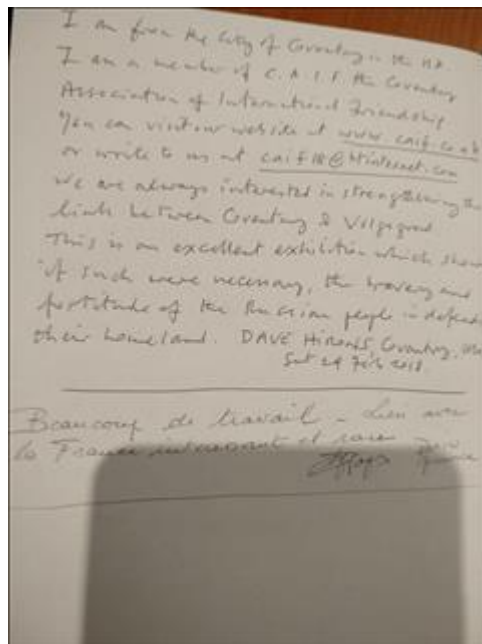 I am from the City of Coventry in the UK.
I am a member of C.A.I.F the Coventry
Association of International Friendship
You can visit our website at www.caif.co.uk
or write to us at caif18@btinternet.com
We are always interested in strengthening the
links between Coventry & Volgograd
This is an excellent exhibition which shows
if such were necessary, the bravery and
fortitude of the Russian people in defending
their homeland. DAVE Coventry,
Sat 24 Feb 2018
Beaucoup de travail - Lien avec
la France intéressant et rare